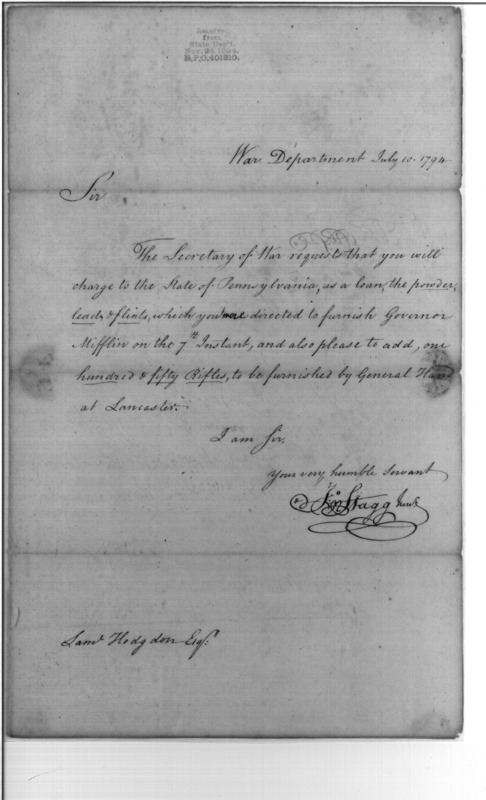 Received
from
State Dep't.
Nov. 24, 1894.
R.P.O. 401810.
War Department July 10. 1794
Sir
The Secretary of War requests that you will
charge to the State of Pennsylvania, as a loan, the powder,
lead & flints, which you were directed to furnish Governor
Mifflin on the 7th Instant, and also please to add, one
hundred & fifty Rifles, to be furnished by General Hand
at Lancaster.
I am Sir,
Your very humble Servant
Jno Stagg Junr
Saml Hodgdon Esqr.